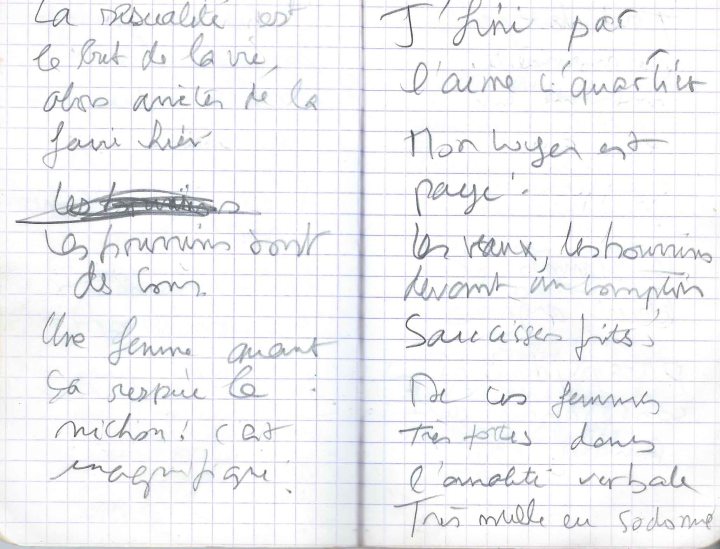 La sexualité est
le but de la vie,
alors arrêtes de la
faire hier
Les pourrins sont
des cons
Une femme avant
ça respire le
nichon! c'est
magnifique!
J'fini par
l'aimé c'quartier
Mon loyer est
payé.
Les veaux, les pourrins
devant un comptoir
Saucisses frites!
De ces femmes
Très fortes dans
l'oralité verbale
Très nulle en sodomie